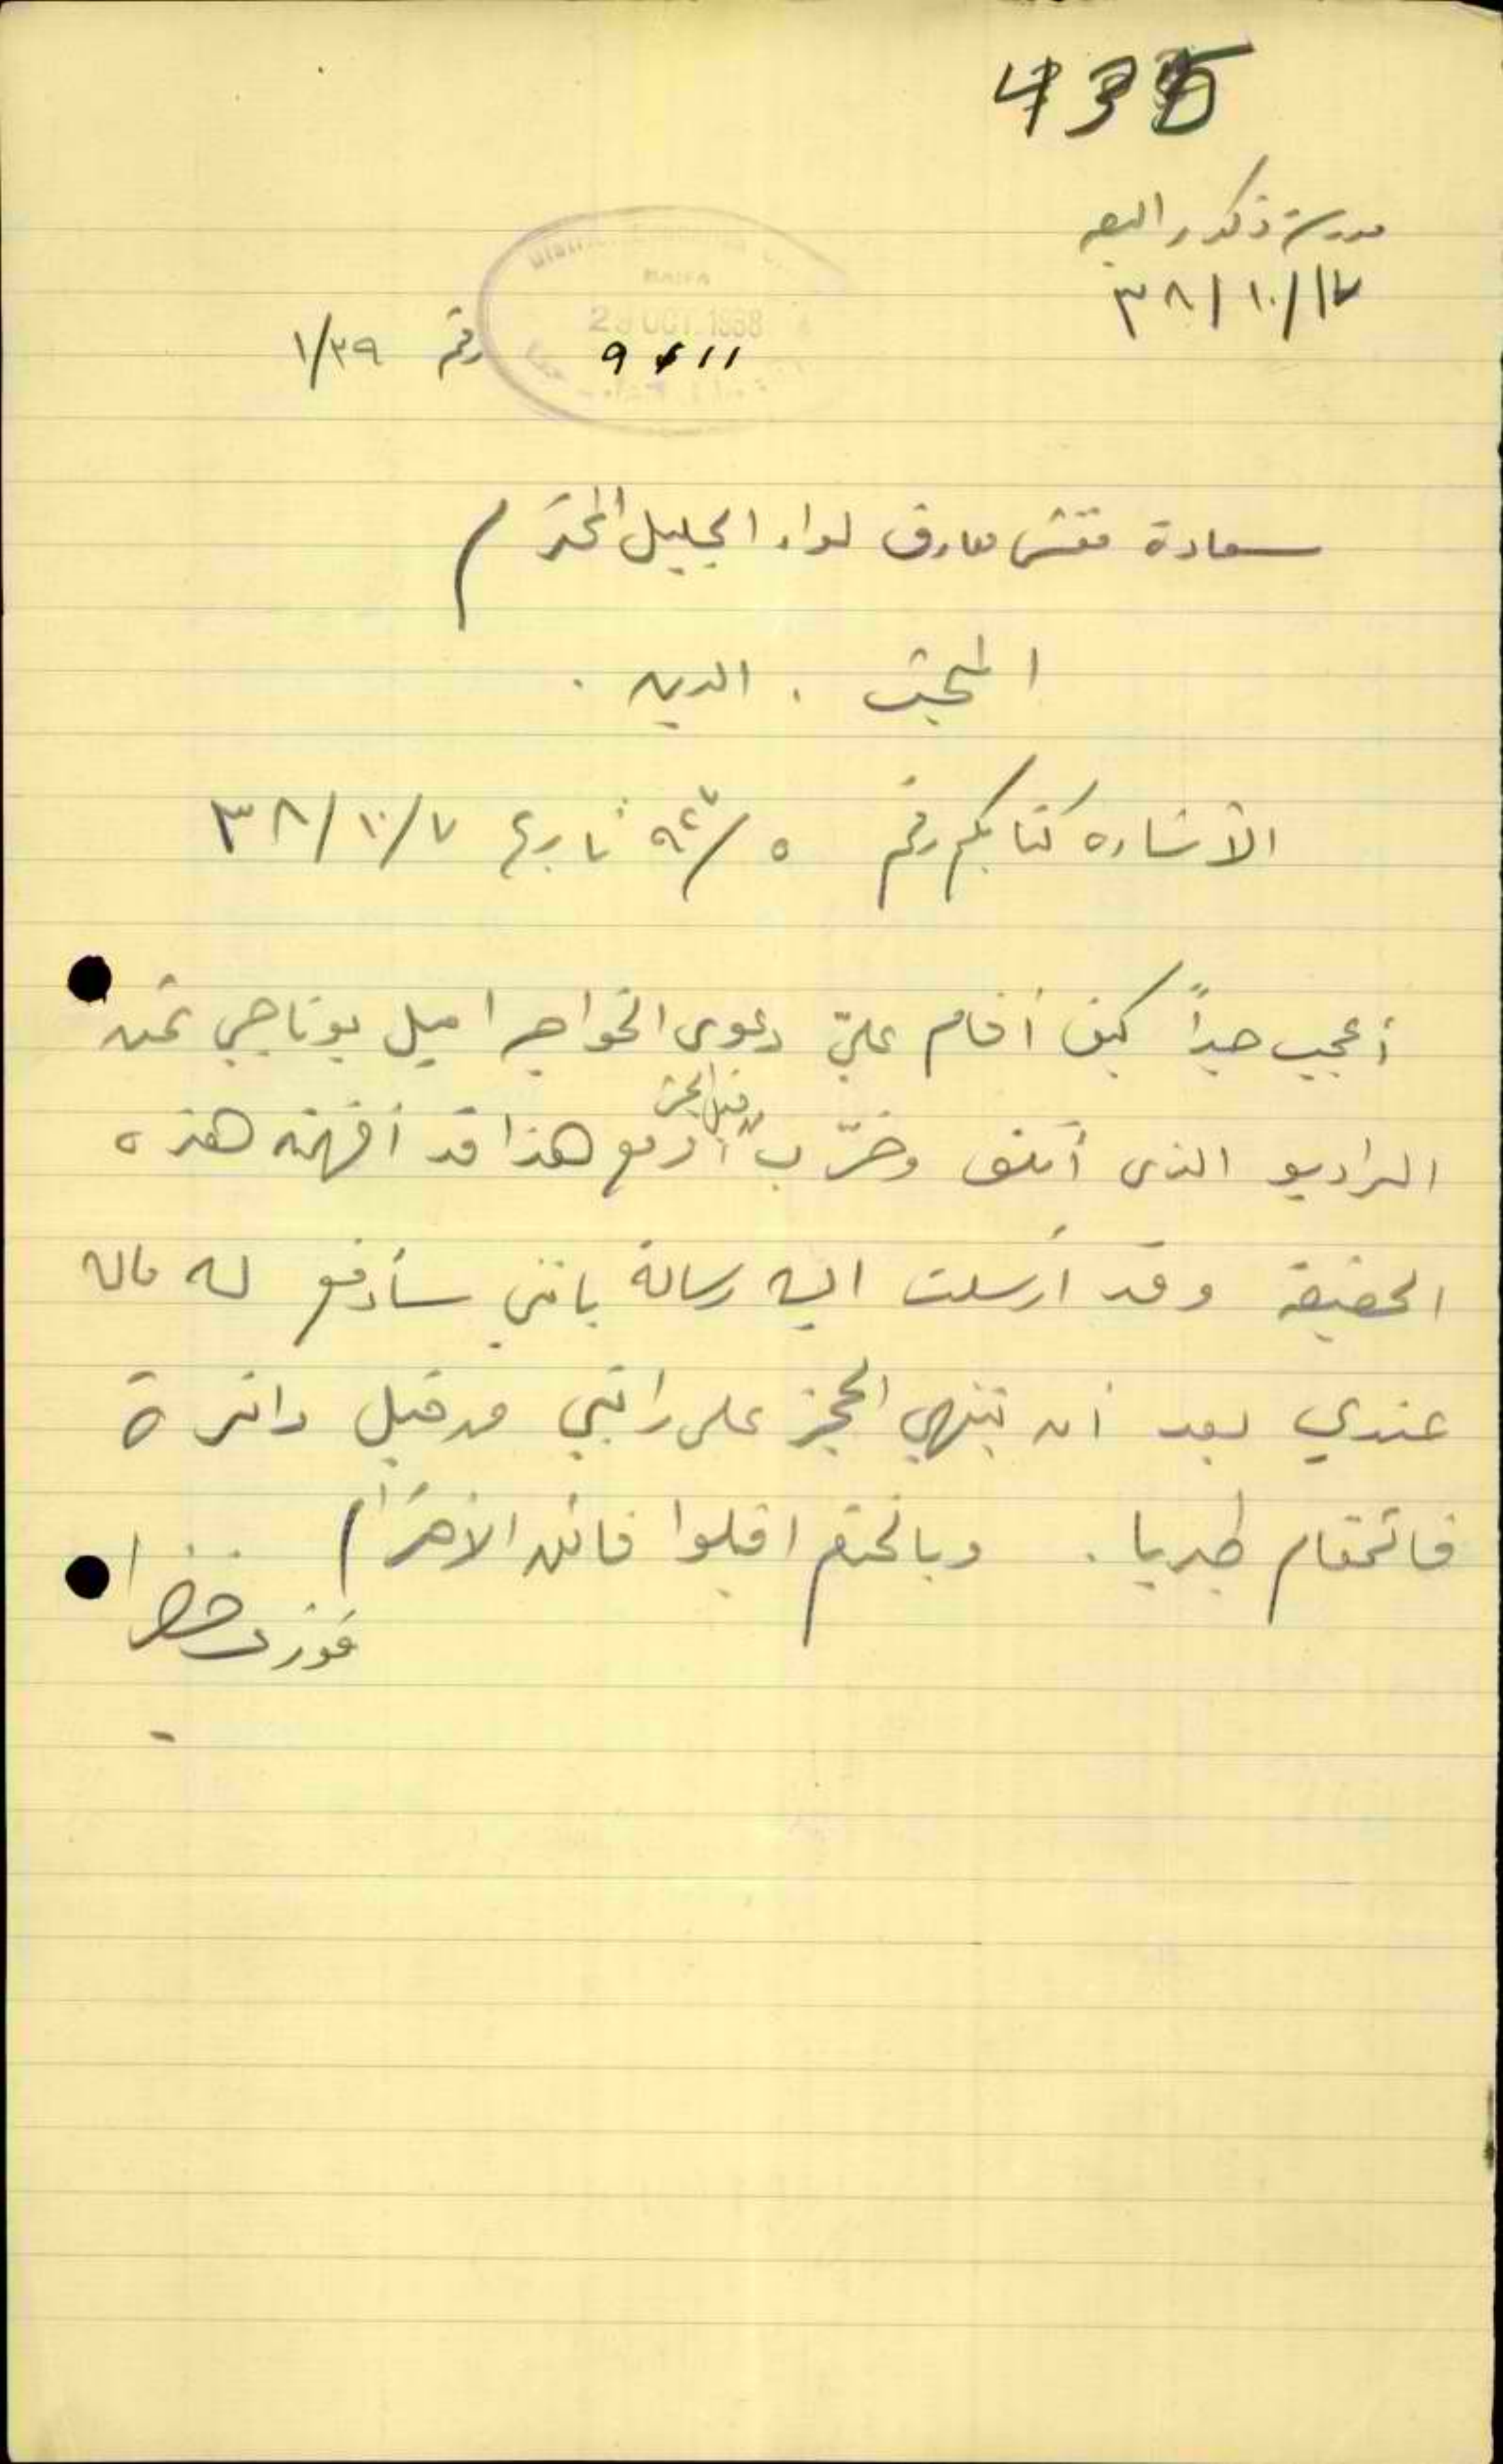 435
مدرسة ذكور البعنه
٣٨/١٠/١٧
HAIFA
OCT. 1938
9611
رقم ١/٣٩
سعادة مفتش معارف لواء الجليل المحترم
المبحث . الدين .
الاشارة كتابكم رقم ٥/٩٢٧ تاريخ ٣٨/١٠/٧
أعجب جداً كيف أقام عليّ دعوى الخواجه اميل بوتاجي ثمن
الراديو الذي أتلف وخرّب من قبل الجيش ومع هذا قد أفهمته هذه
الحقيقة وقد أرسلت اليه رسالة بانني سأدفع له ماله
عندي بعد أن ينتهي الحجز على راتبي من قبل دائرة
قائمقام طبريا . وبالختم اقبلوا فائق الاحترام
فوزي خضرا